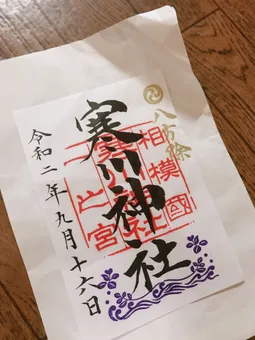 八方除
相模國
寒川神社
一之宮
令和二年九月十六日